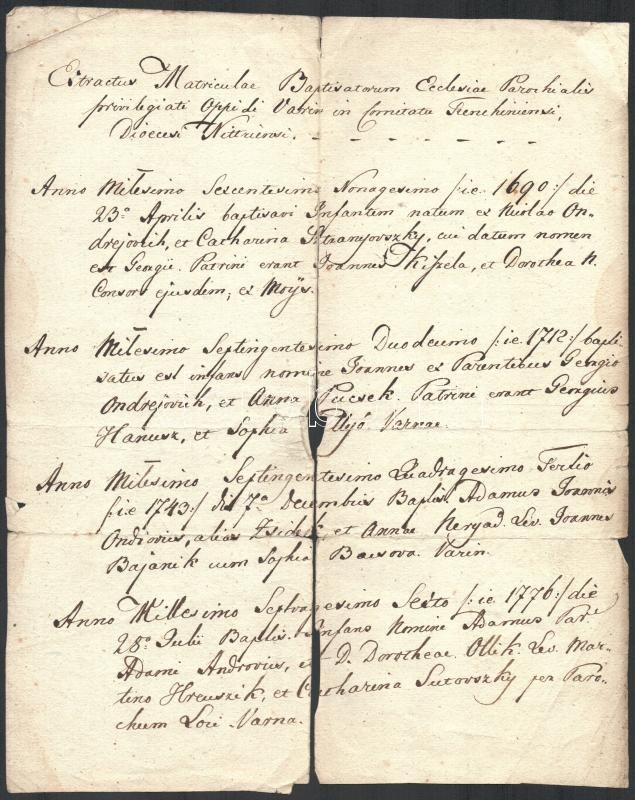 Extractus Matriculae Baptisatorum Ecclesiae Parochialis
privilegiati Oppidi Varin in Comitatu Trenchiniensi,
Dioecesi Nittriensi. - - - - - - -
Anno Milesimo Sexcentesimo Nonagesimo /:ie 1690:/ die
23a Aprilis baptisavi Infantem natum ex Nicolao On-
drejovich, et Catharina cui datum nomen
est Georgii. Patrini erant Joannes Kiszela, et Dorothea N.
Consors ejusdem, ex Moÿs.
Anno Milesimo Septingentesimo Duodecimo /:ie 1712:/ bapti
satus est infans nomine Joannes ex Parentibus Georgio
Ondrejovich, et Anna Pucsek. Patrini erant Georgius
Hanusz, et Sophia Varnae.
Anno Milesimo Septingentesimo Quadragesimo Tertio
/:ie 1743:/ die 7a Decembris Baptis. Adamus Joannis
Ondrovius, alias et Annae Lev. Joannes
Bajanik cum Sophia Bacsova. Varin.
Anno Millesimo Septuagesimo Sexto /:ie 1776:/ die
28a Julii Baptis. Infans Nomine Adamus Par.
Adami Androvius, et D. Dorotheae Ollik. Lev. Mar-
tino Hreuszik, et Catharina Sutovszky per Paro-
chum Loci Varna.